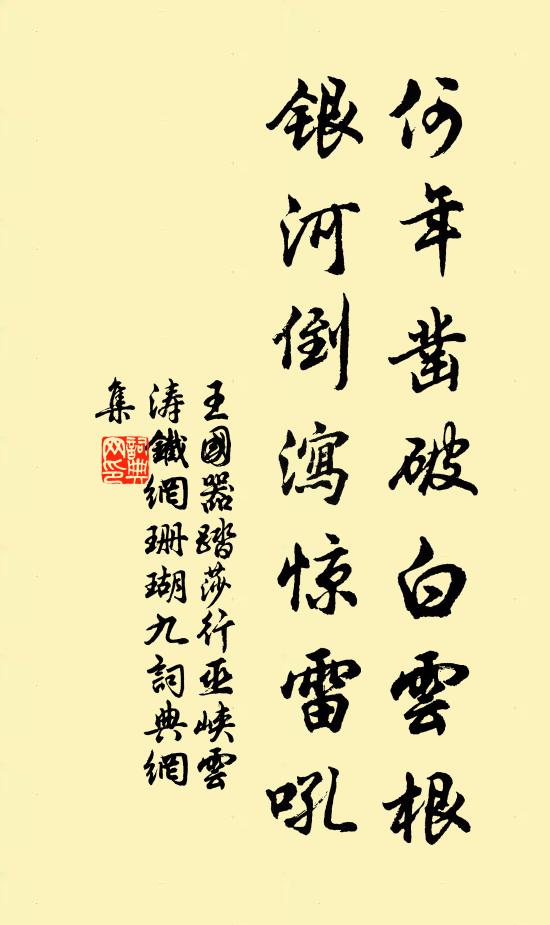 何年鑿破白雲根
銀河倒瀉惊雷吼
王國器踏莎行巫峽雲
涛鐵網珊瑚九詞典網
集
詞典